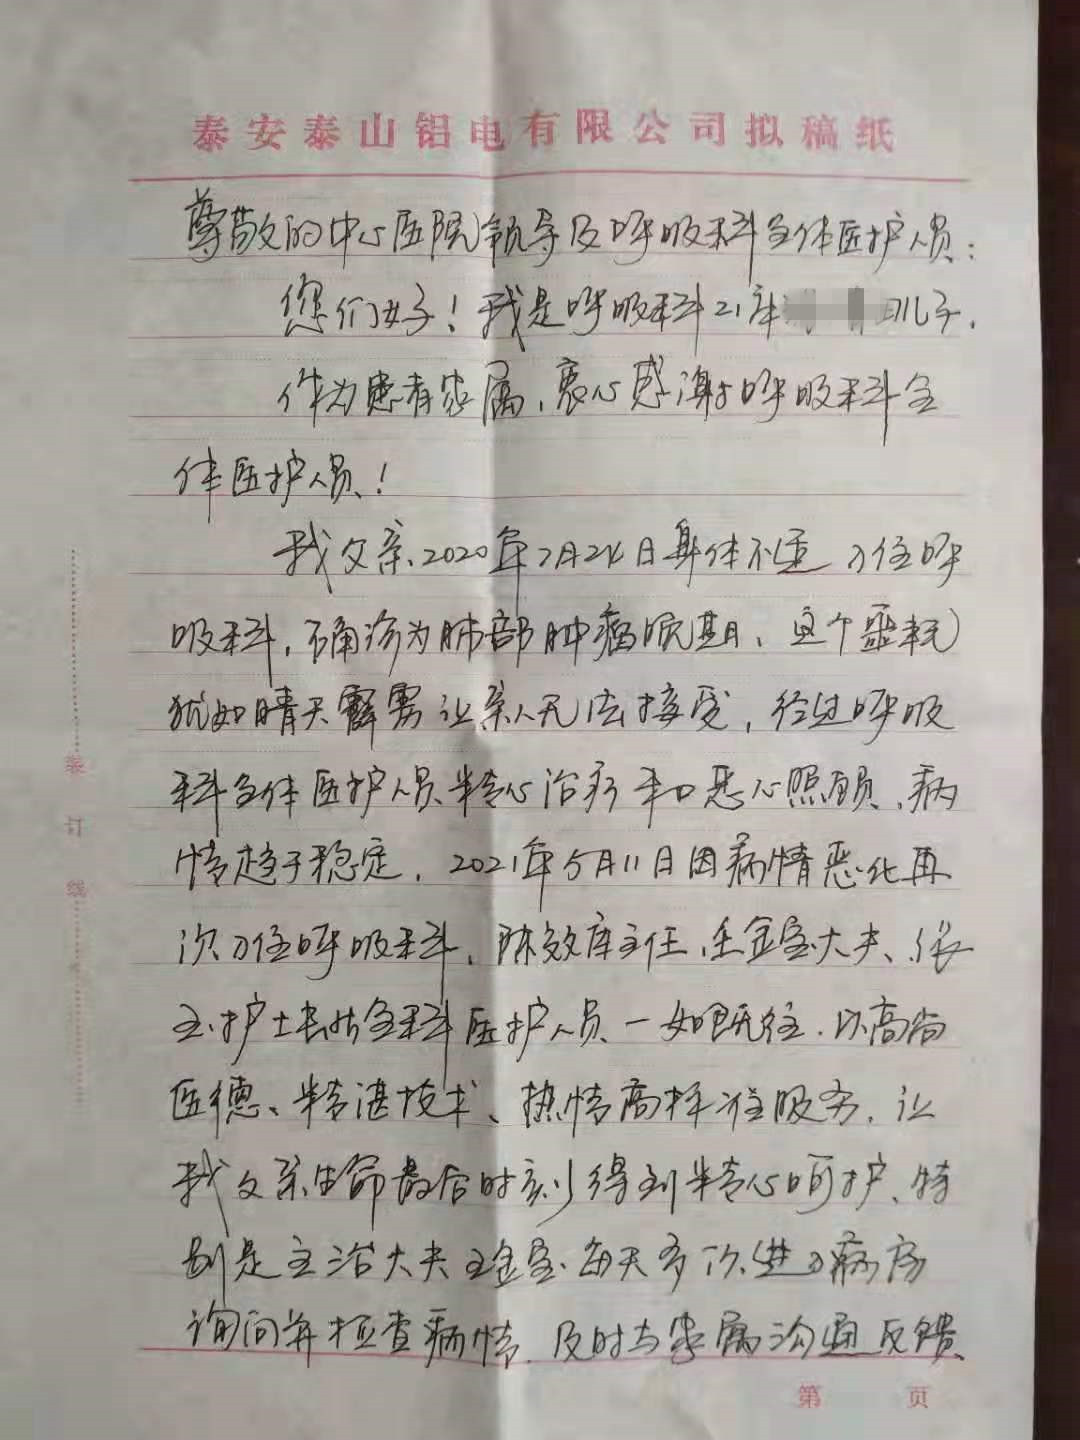 泰安泰山铝电有限公司拟稿纸
尊敬的中心医院领导及呼吸科全体医护人员:
您们好!我是呼吸科21床 儿子,
作为患者家属,衷心感谢呼吸科全
体医护人员!
我父亲2020年7月24日身体不适 入住呼
吸科,确诊为肺部肿瘤晚期、这个噩耗
犹如晴天霹雳让亲人无法接受,经过呼吸
科全体医护人员精心治疗和悉心照顾,病
情趋于稳定,2021年5月11日因病情恶化再
次入住呼吸科,陈效库主任、王金宝大夫、张
玉护士长於全科医护人员一如既往,以高尚
医德、精湛技术、热情高标准服务,让
我父亲生命最后时刻得到精心呵护、特
别是主治大夫王金宝、每天多次进入病房
询问并检查病情,及时与家属沟通反馈
装订线
第 页